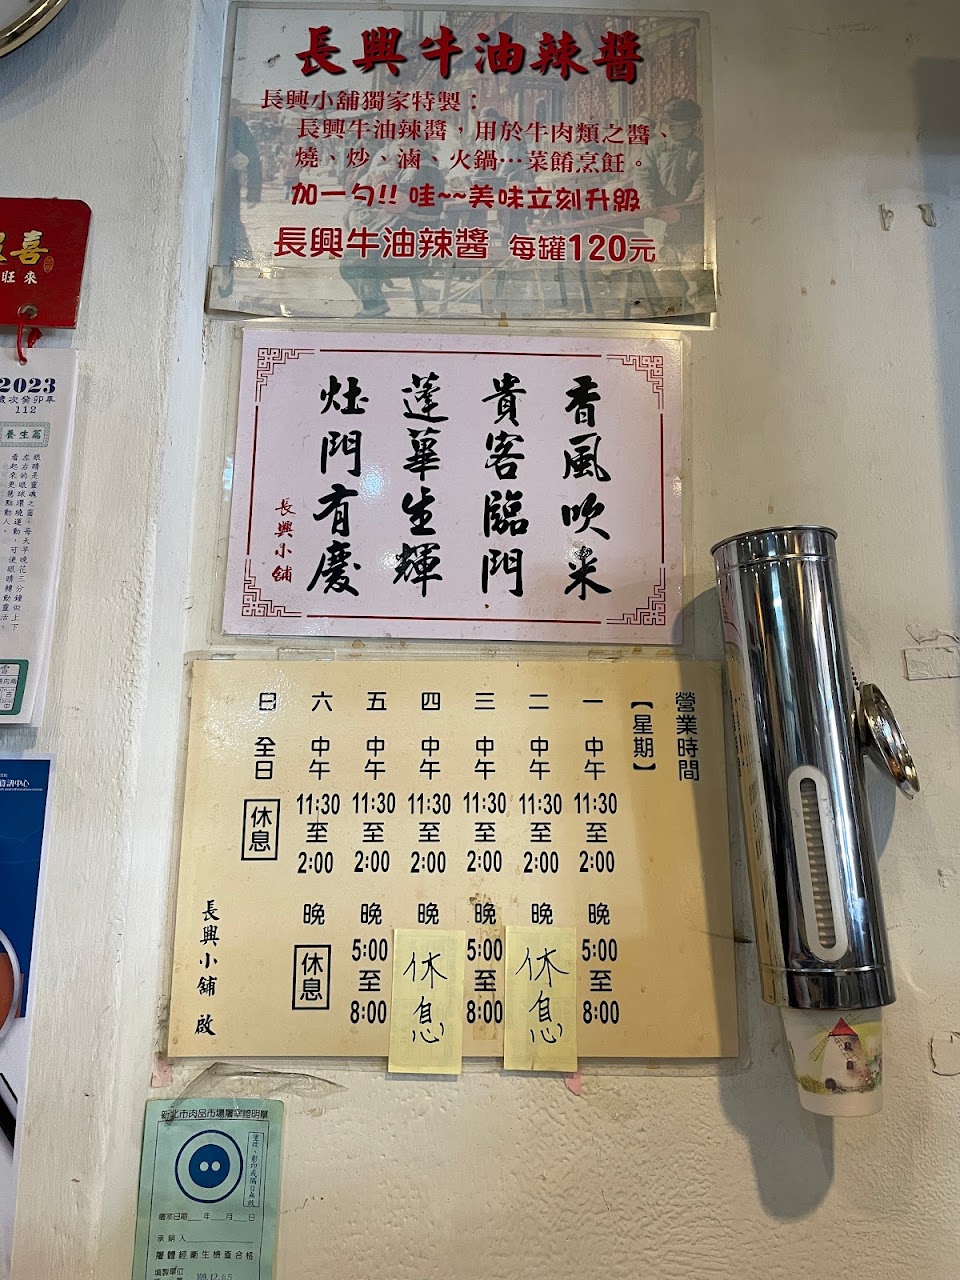 長興牛油辣醬
長興小舖獨家特製：
長興牛油辣醬，用於牛肉類之醬、
燒、炒、滷、火鍋…菜餚烹飪。
加一勺!! 哇~~美味立刻升級
長興牛油辣醬 每罐120元
喜
旺來
2023
歲次癸卯年
112
養生篇
香風吹米
貴客臨門
蓬蓽生輝
灶門有慶
長興小舖
營業時間
【星期】
一 中午 11:30 至 2:00 晚 5:00 至 8:00
二 中午 11:30 至 2:00 晚 休息
三 中午 11:30 至 2:00 晚 5:00 至 8:00
四 中午 11:30 至 2:00 晚 休息
五 中午 11:30 至 2:00 晚 5:00 至 8:00
六 中午 11:30 至 2:00 晚 休息
日 全日 休息
長興小舖 啟
資訊中心
新北市肉品市場屠宰證明單
屠宰日期 年 月 日
承銷人
屠體經衛生檢查合格
填製單位